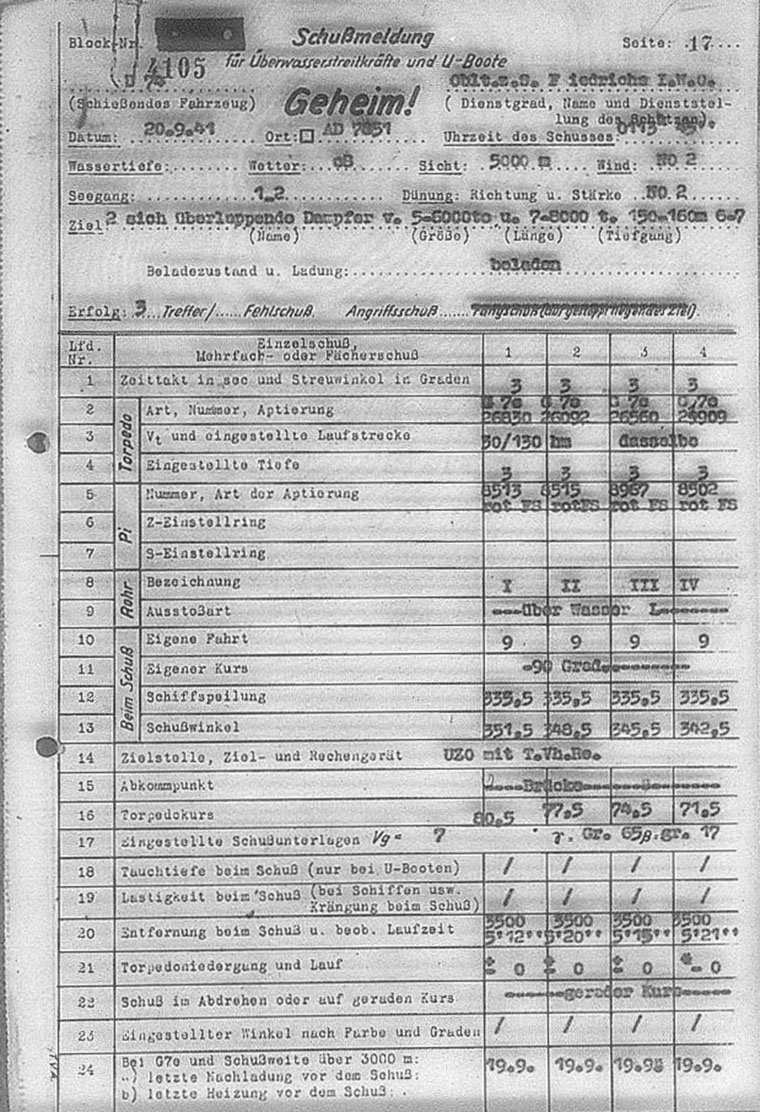 Block-Nr. Schußmeldung Seite: 17
4105 für Überwasserstreitkräfte und U-Boote
Oblt.z.S. F iedrichs I.W.O.
(Schießendes Fahrzeug) Geheim! ( Dienstgrad, Name und Dienststel-
lung des Schützen).
Datum: 20.9.41 Ort: AD 7851 Uhrzeit des Schusses:
Wassertiefe: Wetter: cB Sicht: 5000 m Wind: NO 2
Seegang: 1-2 Dünung: Richtung u. Stärke NO.2
Ziel 2 sich überlappende Dampfer v. 5-6000to u. 7-8000 t. 150-160m 6-7
(Name) (Größe) (Länge) (Tiefgang)
Beladezustand u. Ladung: beladen
Erfolg: 3 Treffer/ Fehlschuß Angriffsschuß
Lfd. Nr. Einzelschuß, Mehrfach- oder Fächerschuß 1 2 3 4
1 Zeittakt in sec und Streuwinkel in Graden 3 3 3 3
Torpedo
2 Art, Nummer, Aptierung G 7e G 7e G 7e G 7e
26830 26092 26560 24909
3 Vt und eingestellte Laufstrecke 30/130 hm dasselbe
4 Eingestellte Tiefe 3 3 3 3
Pi
5 Nummer, Art der Aptierung 8513 8515 8967 8502
rot FS rotFS rot FS rot FS
6 Z-Einstellring
7 S-Einstellring
Rohr
8 Bezeichnung I II III IV
9 Ausstoßart ---über Wasser L-------
Beim Schuß
10 Eigene Fahrt 9 9 9 9
11 Eigener Kurs -90 Grad---------
12 Schiffspeilung 335,5 335,5 335,5 335,5
13 Schußwinkel 351,5 348,5 345,5 342,5
14 Zielstelle, Ziel- und Rechengerät UZO mit T.Vh.Re.
15 Abkommpunkt ----Brücke-----
16 Torpedokurs 80,5 77,5 74,5 71,5
17 Eingestellte Schußunterlagen Vg= 7 γ. Gr. 65 β.gr. 17
18 Tauchtiefe beim Schuß (nur bei U-Booten) / / / /
19 Lastigkeit beim Schuß (bei Schiffen usw. Krängung beim Schuß) / / / /
20 Entfernung beim Schuß u. beob. Laufzeit 3500 3500 3500 3500
5'12'' 5'20'' 5'15'' 5'21''
21 Torpedoniedergang und Lauf ± 0 ± 0 ± 0 0
22 Schuß im Abdrehen oder auf geraden Kurs ------gerader Kurs-----
23 Eingestellter Winkel nach Farbe und Graden / / / /
24 Bei G7e und Schußweite über 3000 m: 19.9. 19.9. 19.9. 19.9.
a) letzte Nachladung vor dem Schuß:
b) letzte Heizung vor dem Schuß: